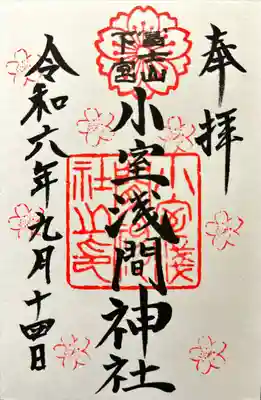 奉拝
富士山
下宮
小室浅間神社
小室浅間
神社之印
令和六年九月十四日